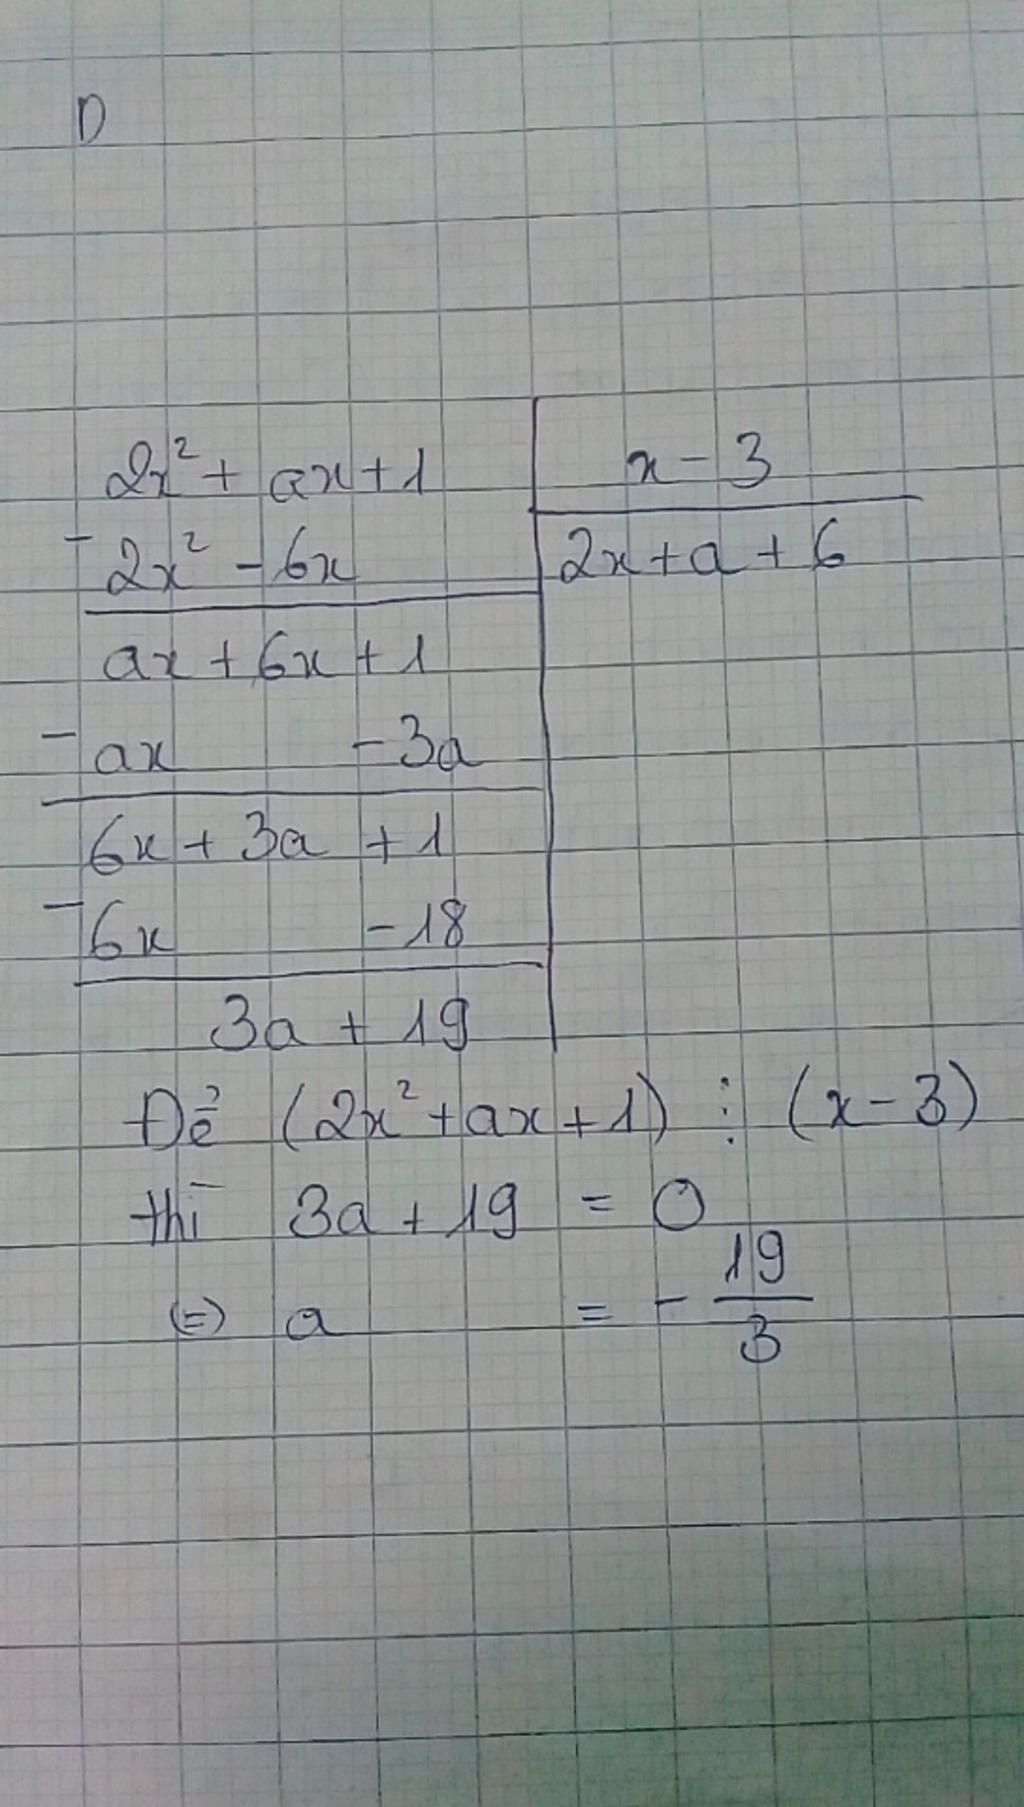 D
2x² + ax + 1 | x - 3
- 2x² - 6x | 2x + a + 6
ax + 6x + 1
- ax - 3a
6x + 3a + 1
- 6x - 18
3a + 19
Để (2x² + ax + 1) ⋮ (x - 3)
thì 3a + 19 = 0
(=) a = - 19/3